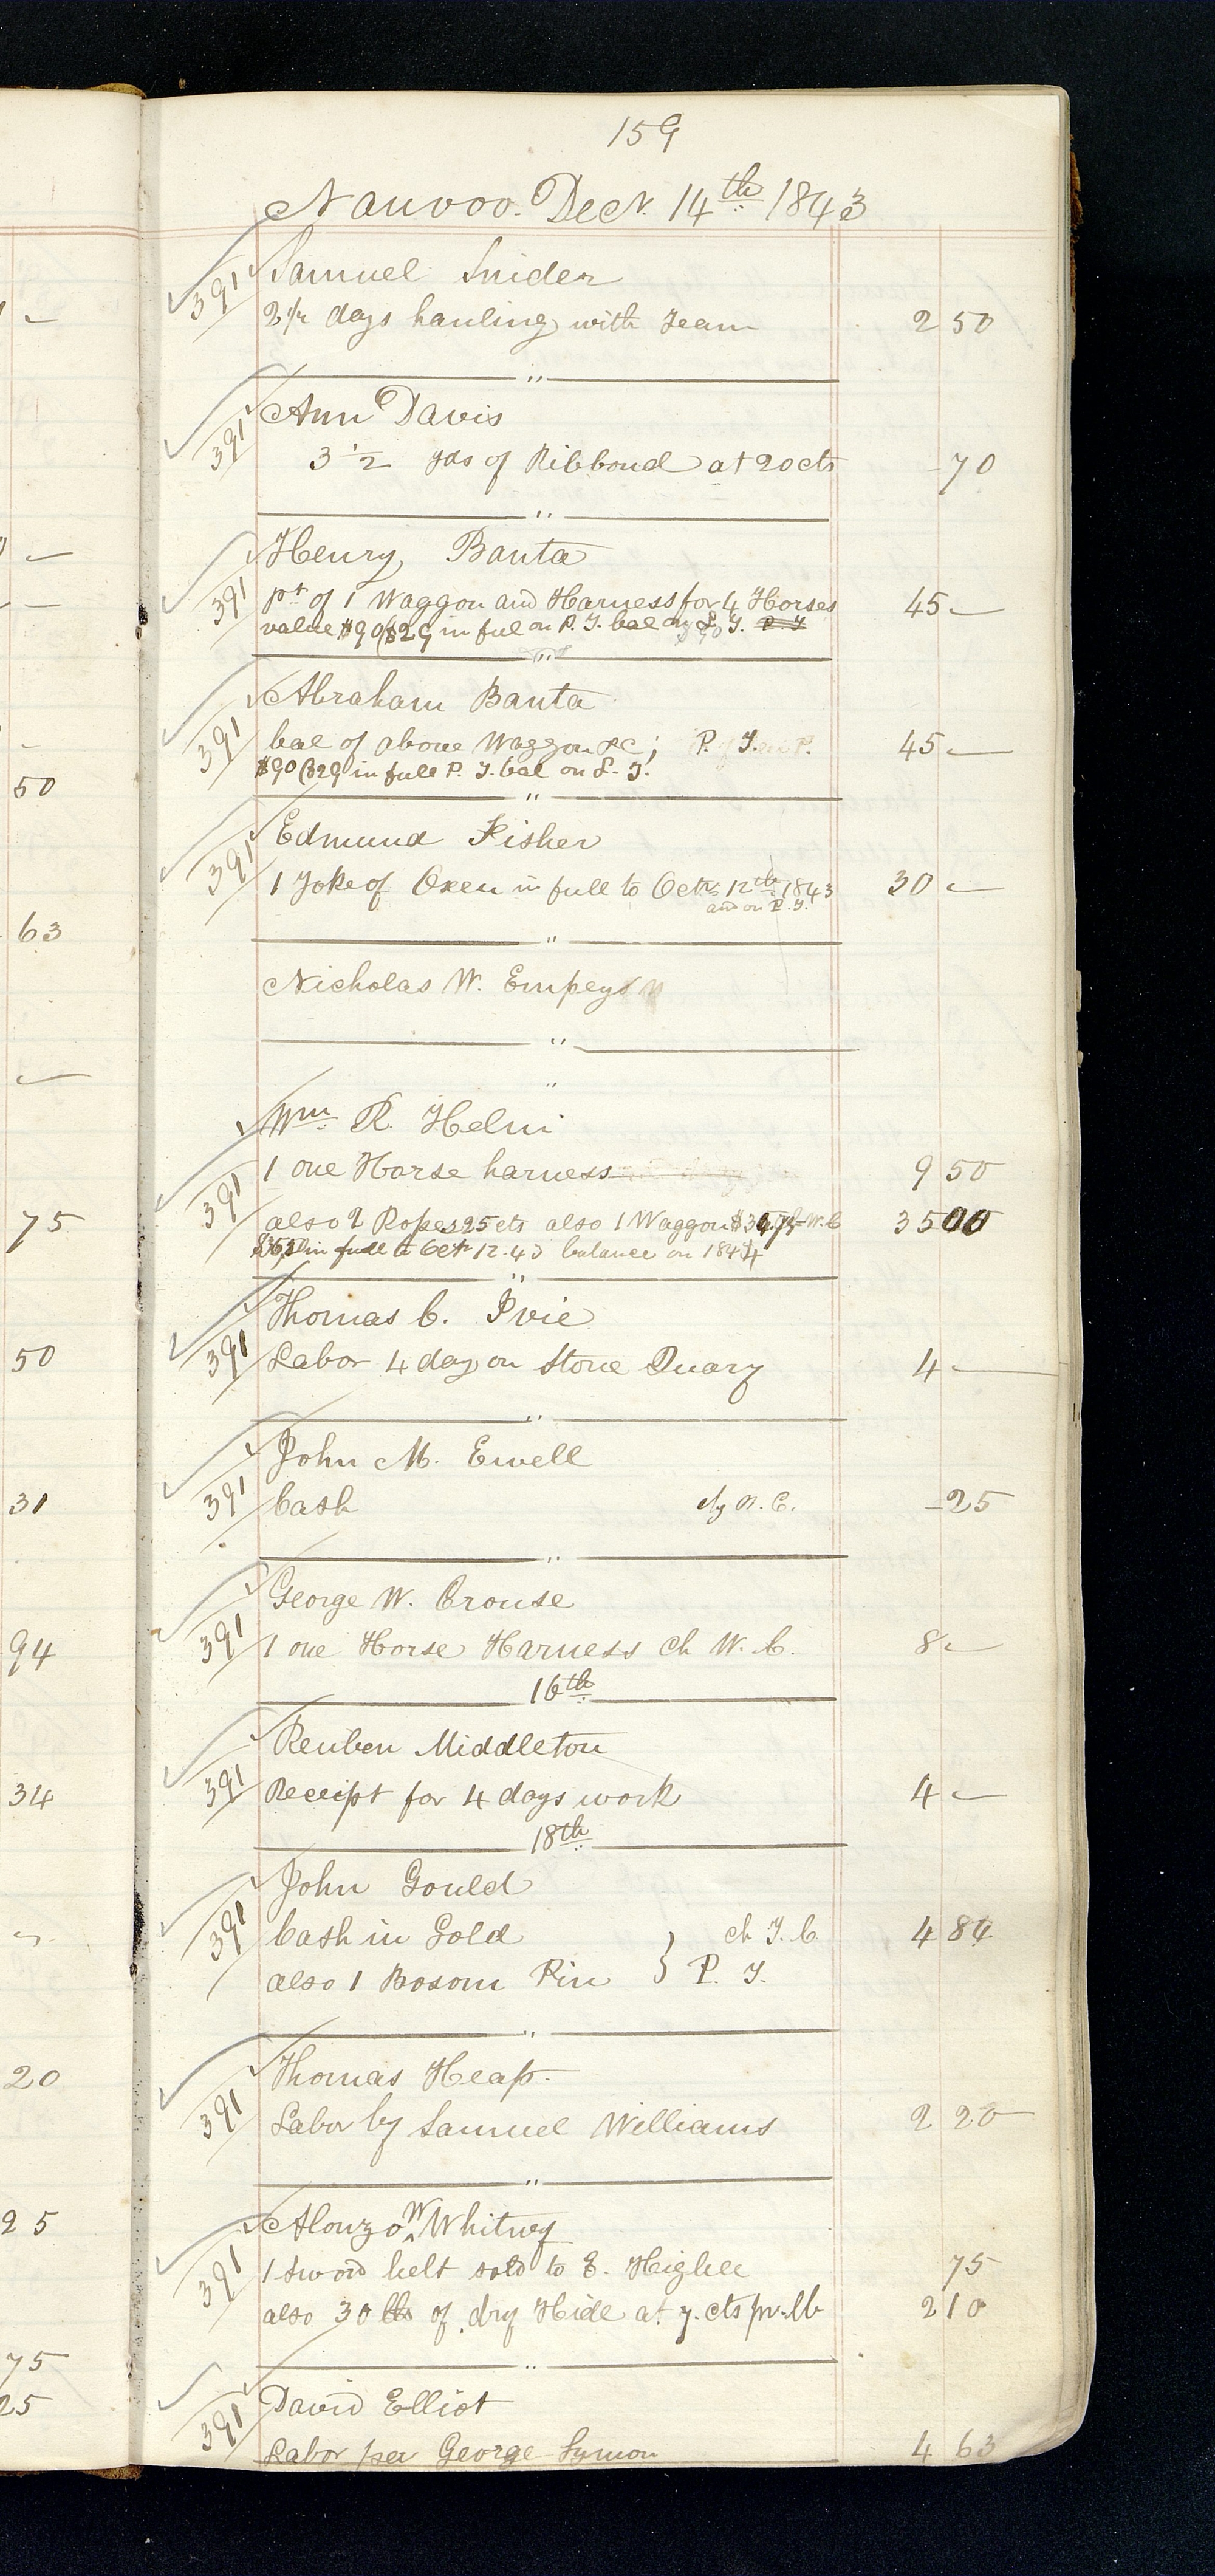 159
Nauvoo. Decr. 14th 1843
391 Samuel Snider
2 1/2 days hauling with Team 2 50
"
391 Ann Davis
3 1/2 yds of Ribbond at 20 cts - 70
"
391 Henry Banta
pt of 1 Waggon and Harness for 4 Horses 45 —
value $90 ($29 in ful on P. T. bal on S. T. P. T
"
391 Abraham Banta
bal of above Waggon &c; P. T. 45 —
$90 ($29 in full P. T. bal on S. T.
"
391 Edmund Fisher
1 Yoke of Oxen in full to Octr. 12th 1843 30 —
and on P. T.
"
Nicholas W. Empey
"
"
391 Wm R. Helm
1 one Horse harness 9 50
also 2 Ropes 25 cts also 1 Waggon W. C 35 00
in full to Octr 12. 43 balance on 1844
"
391 Thomas C. Ivie
Labor 4 day on Stone Quary 4 —
"
391 John M. Ewell
Cash - 25
"
391 George W. Crouse
1 one Horse Harness ch W. C. 8 —
16th
391 Reuben Middleton
Receipt for 4 days work 4 —
18th
391 John Gould
Cash in Gold ch T. C 4 84
also 1 Bosom Pin } P. T.
"
391 Thomas Heap.
Labor by Samuel Williams 2 20
"
391 Alonzo W Whitney
1 sword belt sold to E. Higbee 75
also 30 lbs of dry Hide at 7. cts pr. lb 2 10
"
391 David Elliot
Labor per George Symon 4 63
50
63
75
50
31
94
34
20
25
75
25